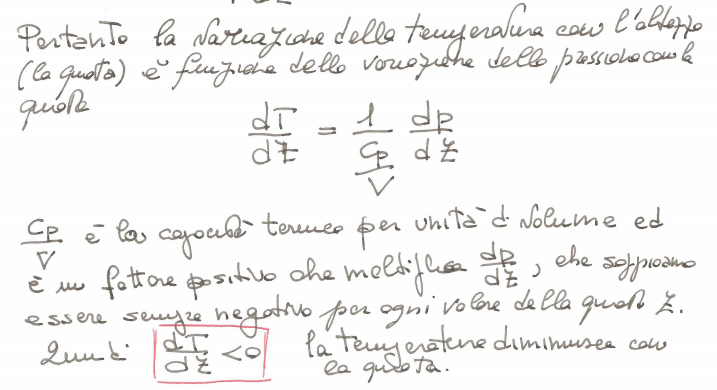 Pertanto la variazione della temperatura con l'altezza
(la quota) è funzione della variazione della pressione con la
quota
dT/dZ = 1/(Cp/V) dp/dZ
Cp/V è la capacità termica per unità di volume ed
è un fattore positivo che moltiplica dp/dZ, che sappiamo
essere sempre negativo per ogni valore della quota Z.
Quindi dT/dZ <0 la temperatura diminuisce con
la quota.